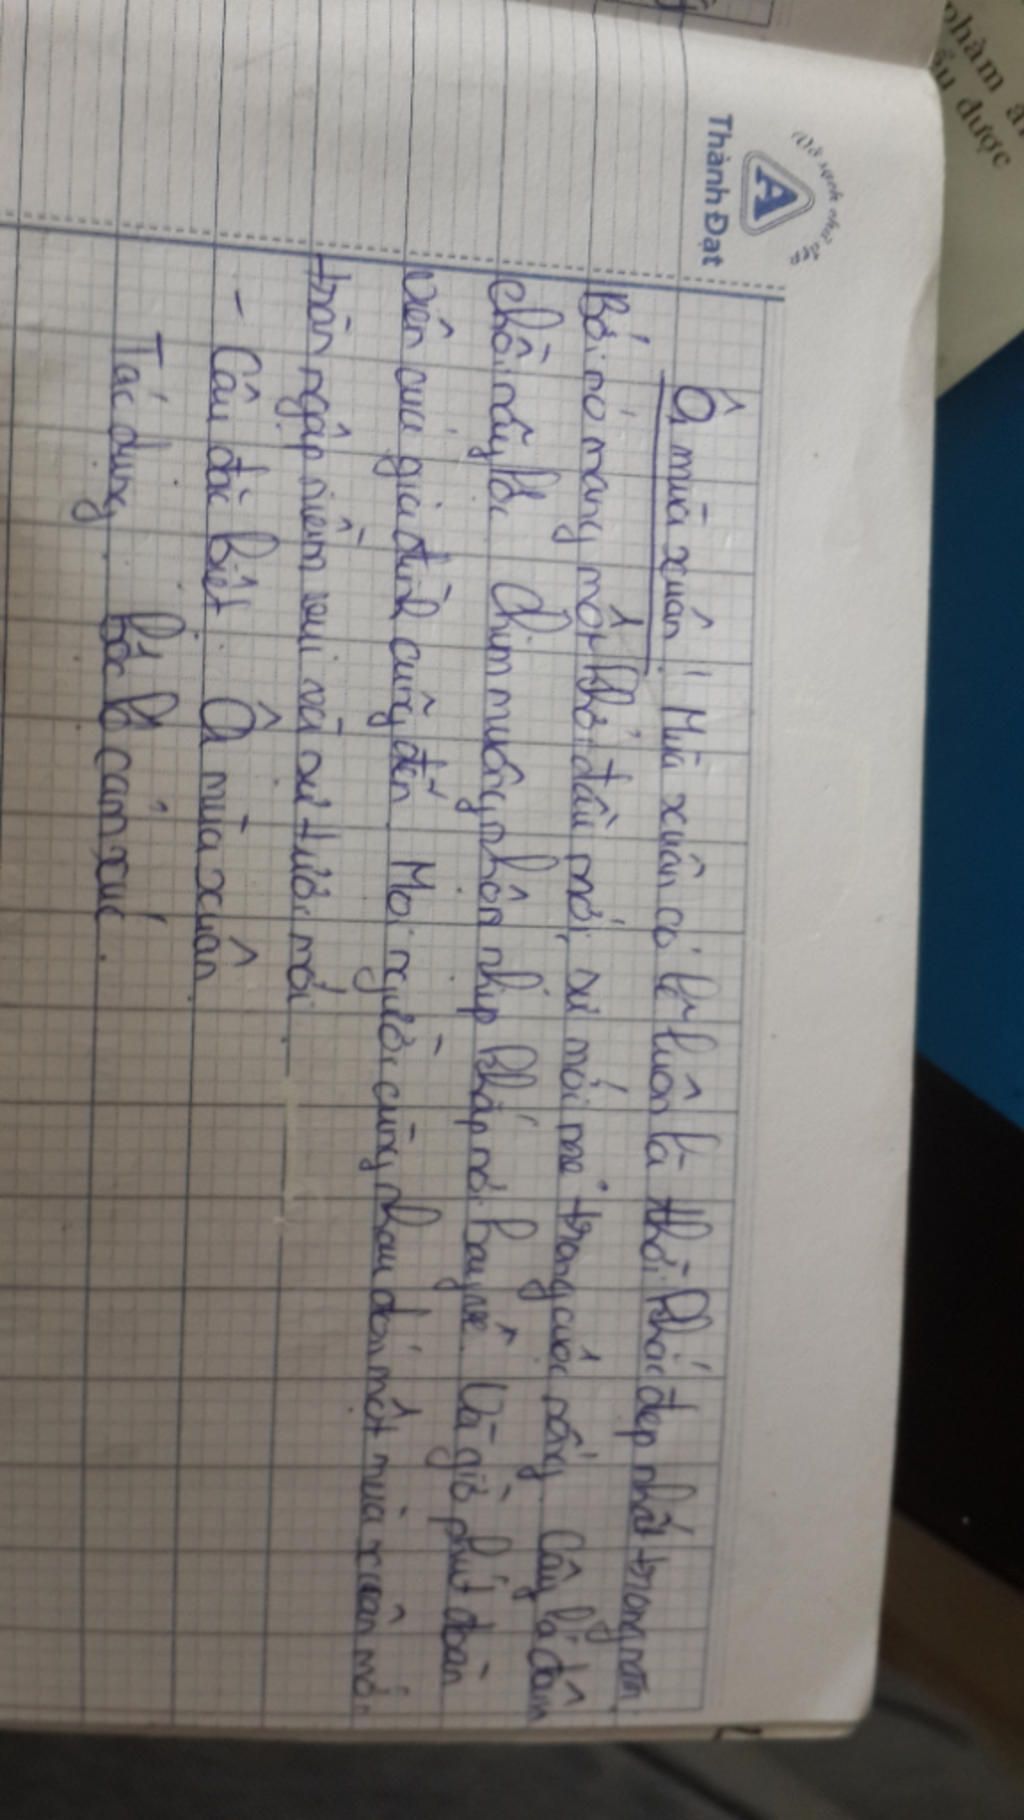 phàm ả
ấu được
A
Thành Đạt
Ôi mùa xuân! Mùa xuân có lẽ luôn là thời khắc đẹp nhất trong năm,
Bởi nó mang một khởi đầu mới, sự mới mẻ trong cuộc sống. Cây lá đâm
chồi nảy lộc. Chim muông nhộn nhịp khắp nơi bay về. Và giờ phút đoàn
viên của gia đình cũng đến. Mọi người cùng nhau đón một mùa xuân mới
tràn ngập niềm vui và sự tươi mới
- Câu đặc biệt: Ôi mùa xuân
Tác dụng: Bộc lộ cảm xúc.